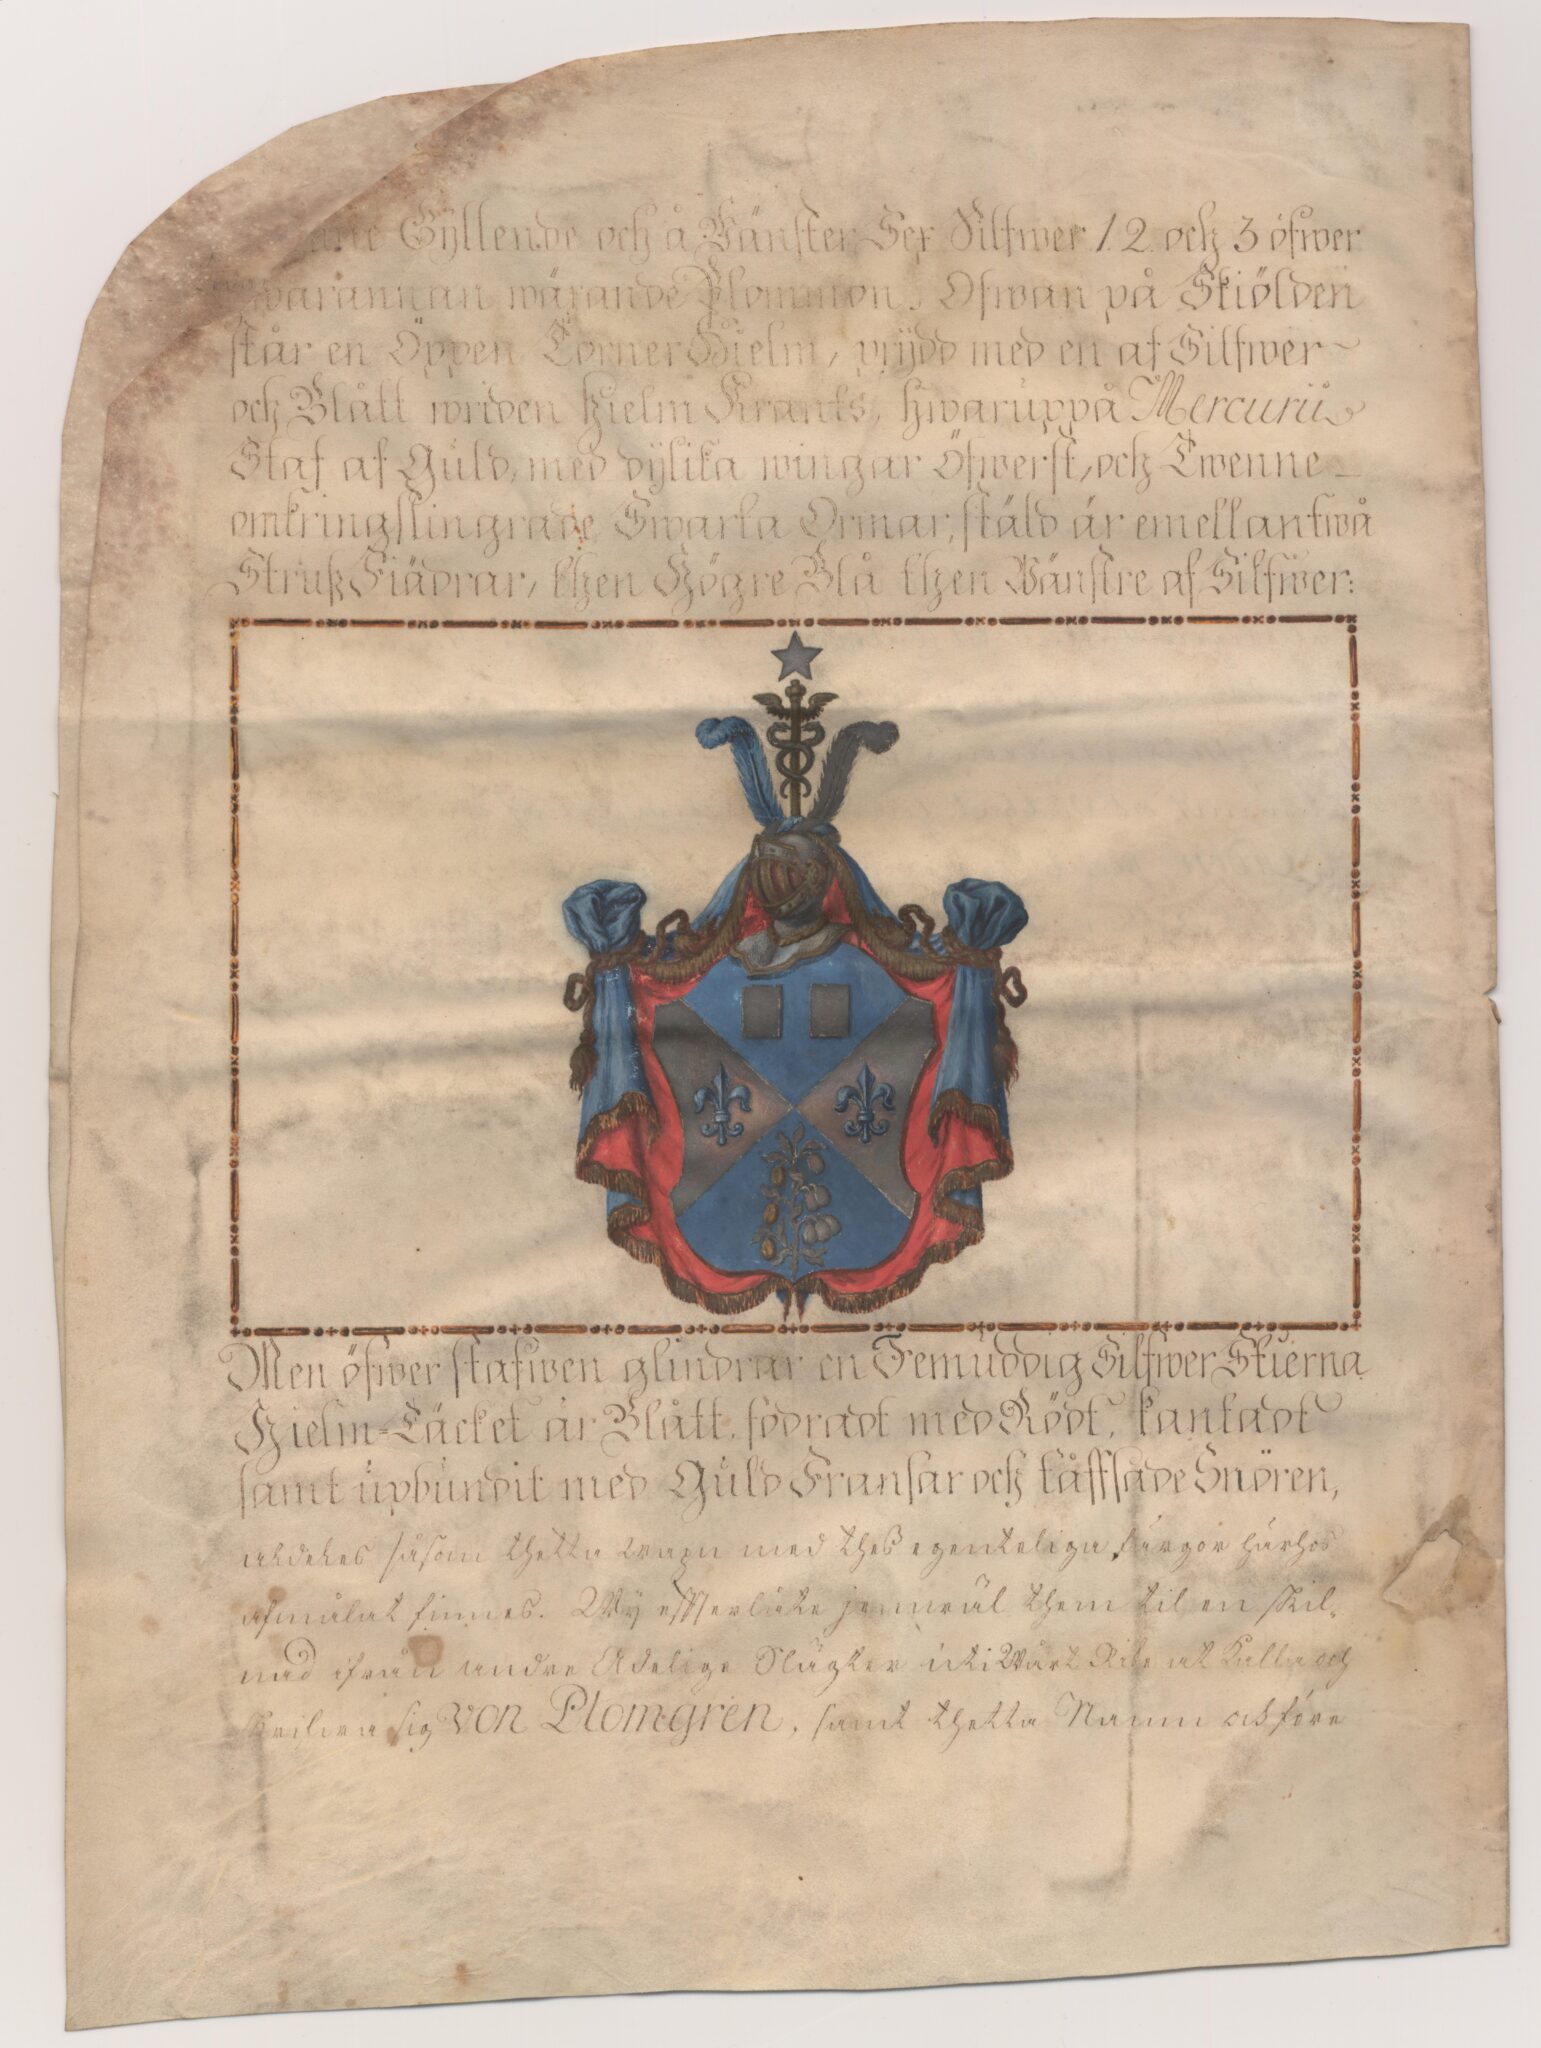 Gyllende och å Wänster Sex Silfwer 1. 2. och 3 öfwer
hwarannan wärande Plommon. Ofwan på Skiölden
står en Öppen Torner Hielm, prydd med en af Silfwer
och Blått wriden Hielm Krants, hwaruppå Mercurii
Staf af Guld, med dylika wingar Öfwerst, och Twenne
omkringslingrade Swarta Ormar, stäld är emellan twå
Struß Fiädrar, then Högre Blå then Wänstre af Silfwer:
Men öfwer stafwen glindrar en Femuddig Silfwer Stierna
Hielm-Täcket är Blått, fodradt med Rödt, kantadt
samt upbundit med Guld Fransar och tåffsade Snören,
aldeles såsom thetta wapn med thes egenteliga färgor härhos
afmålat finnes. Wy effterlåte jemwäl them til en skil-
nad ifrån andre Adelige Slägter uti Wårt Rike at kalla och
skrifwa sig von Plomgren, samt thetta Namn at före